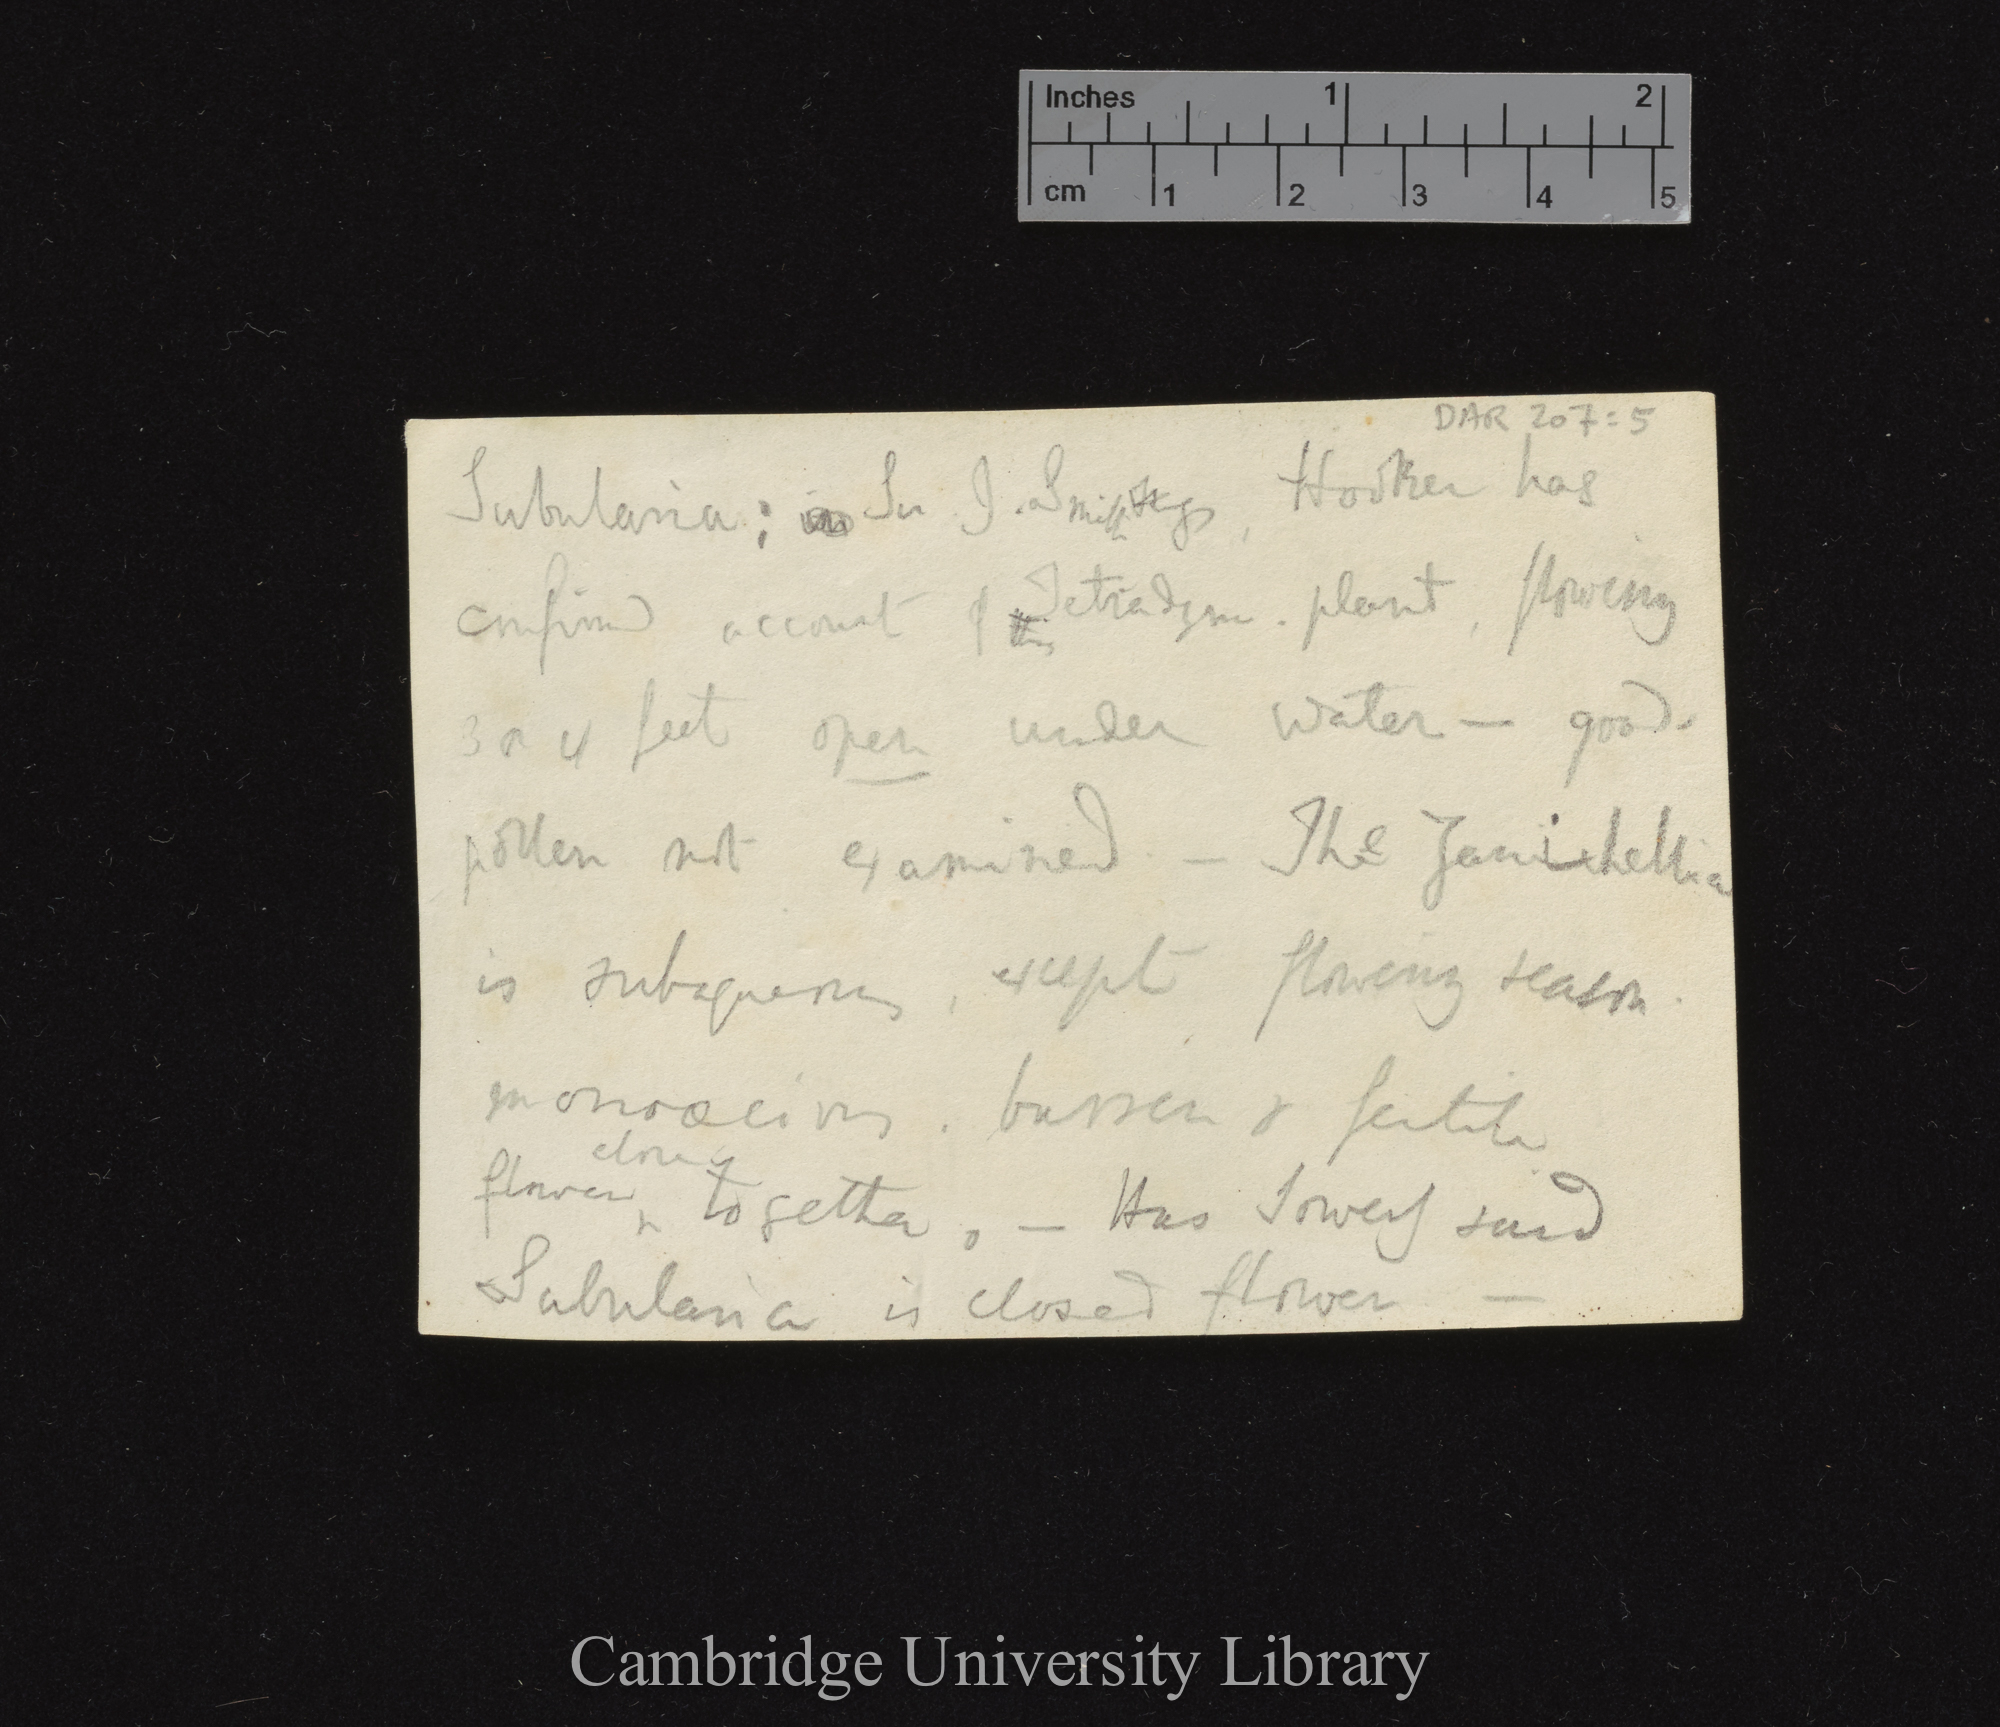 Inches 1 2
cm 1 2 3 4 5
DAR 207:5
Subularia; Sir J. Smith says, Hooker has
confirmed account of Tetradyn. plant, flowering
3 or 4 feet open under water — good.
pollen not examined — The Zanichellia
is subaqueous, except flowering season.
monoecious. barren & fertile
close
flower ^ together. — Has Sowerby said
Subularia is closed flower —
Cambridge University Library